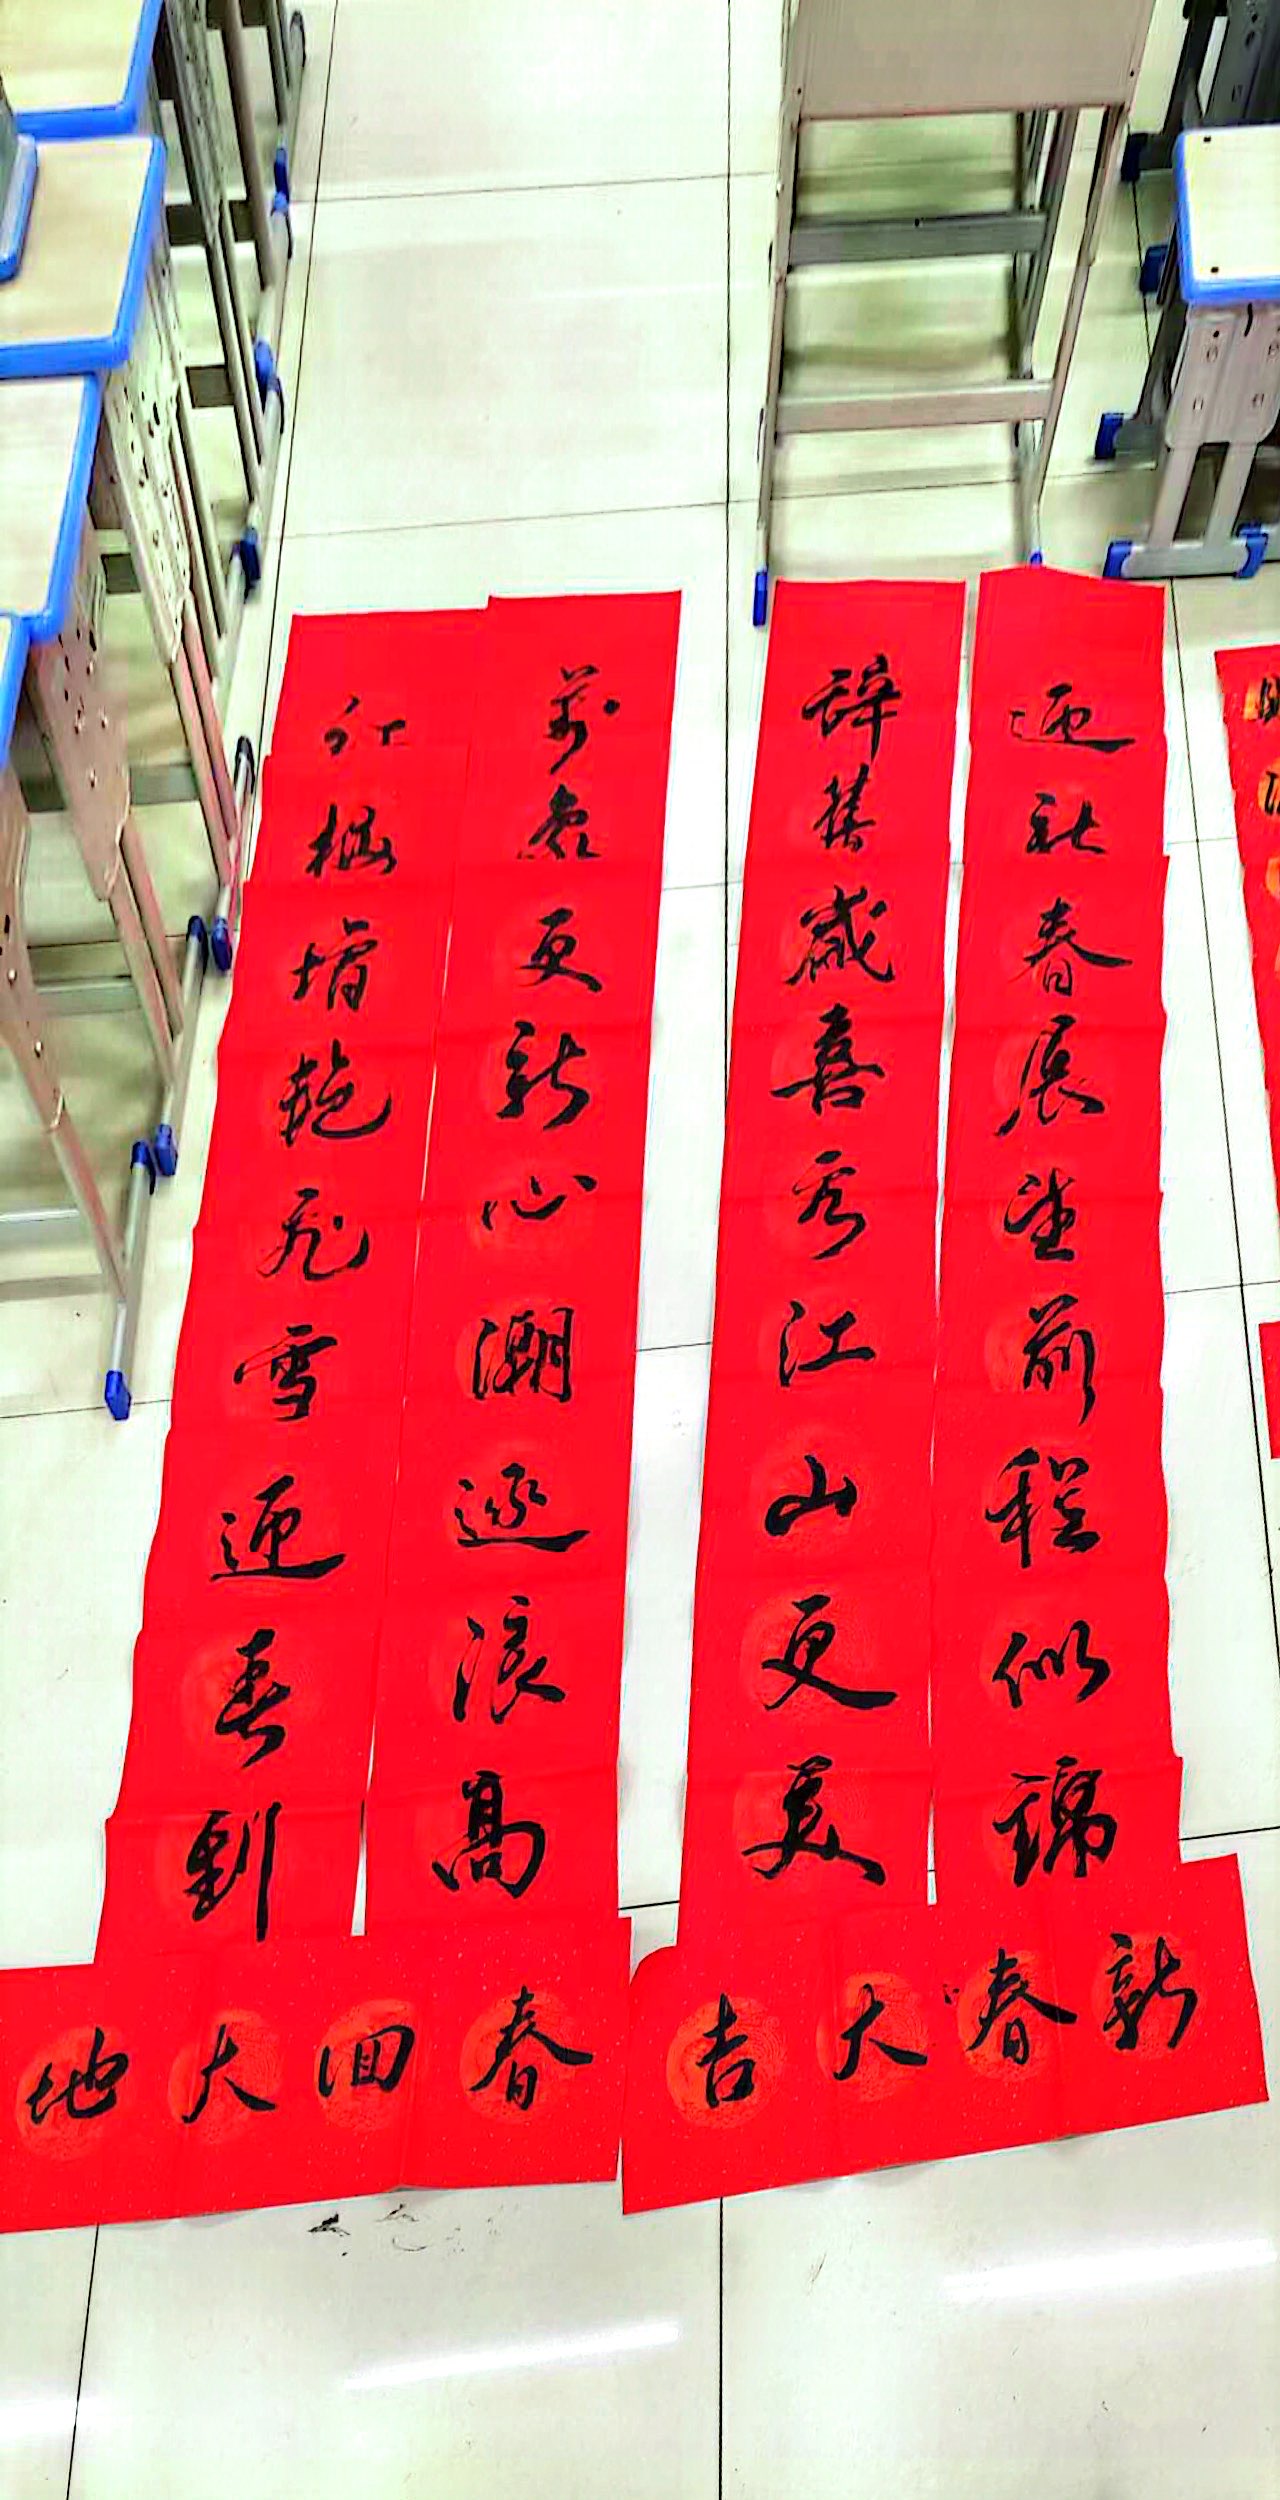 迎新春展望前程似锦
辞旧岁喜看江山更美
新春大吉
萬象更新心潮逐浪高
红梅增艳飞雪迎春到
春回大地